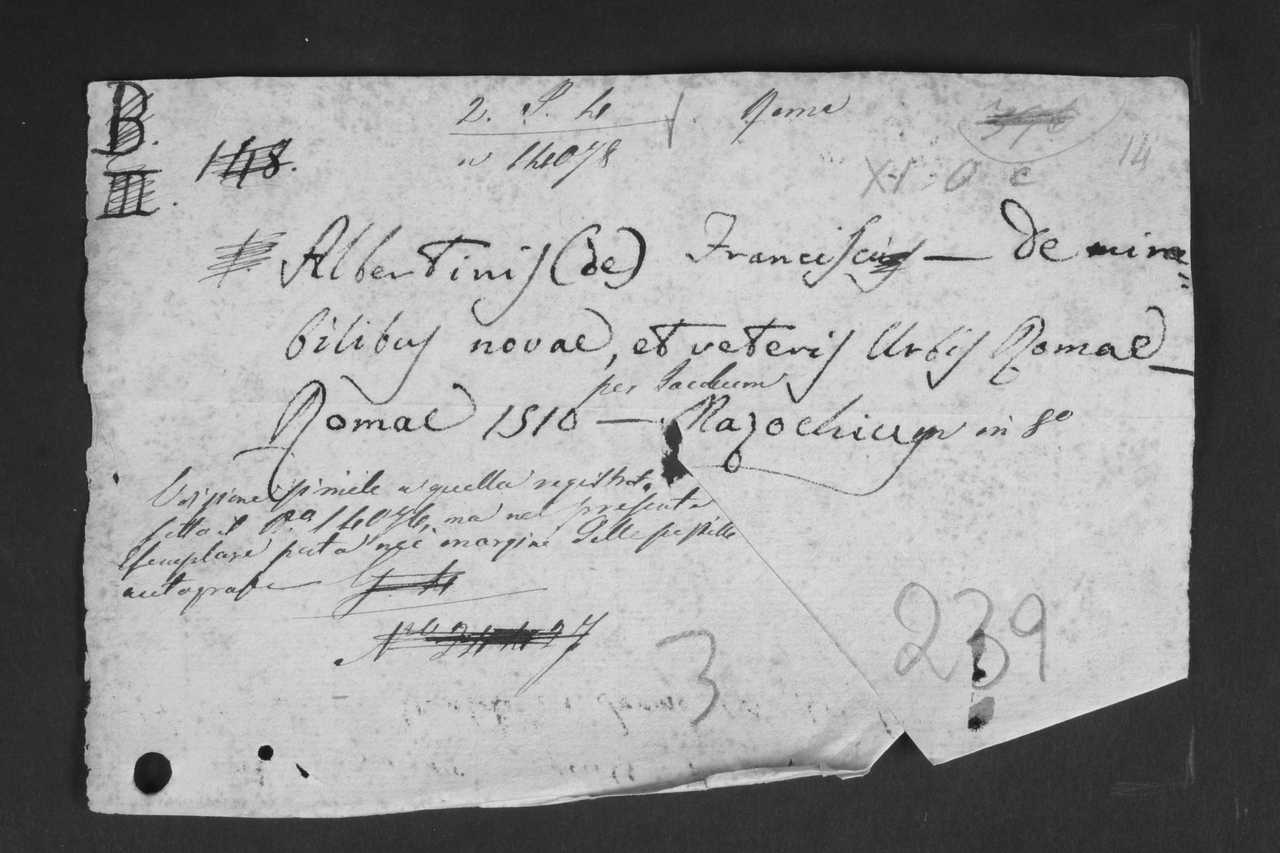 B.
III.
148.
2. P. 4
n 14078
Roma
X-1-0 c
14
Albertinis (de) Franciscus — De mira=
bilibus novae, et veteris Urbis Romae —
per Jacobum
Romae 1510 — Mazochium in 8º
Edizione simile a quella registrata
sotto il Nº 14076, ma nel presente
esemplare porta nei margini delle postille
autografe
3
239